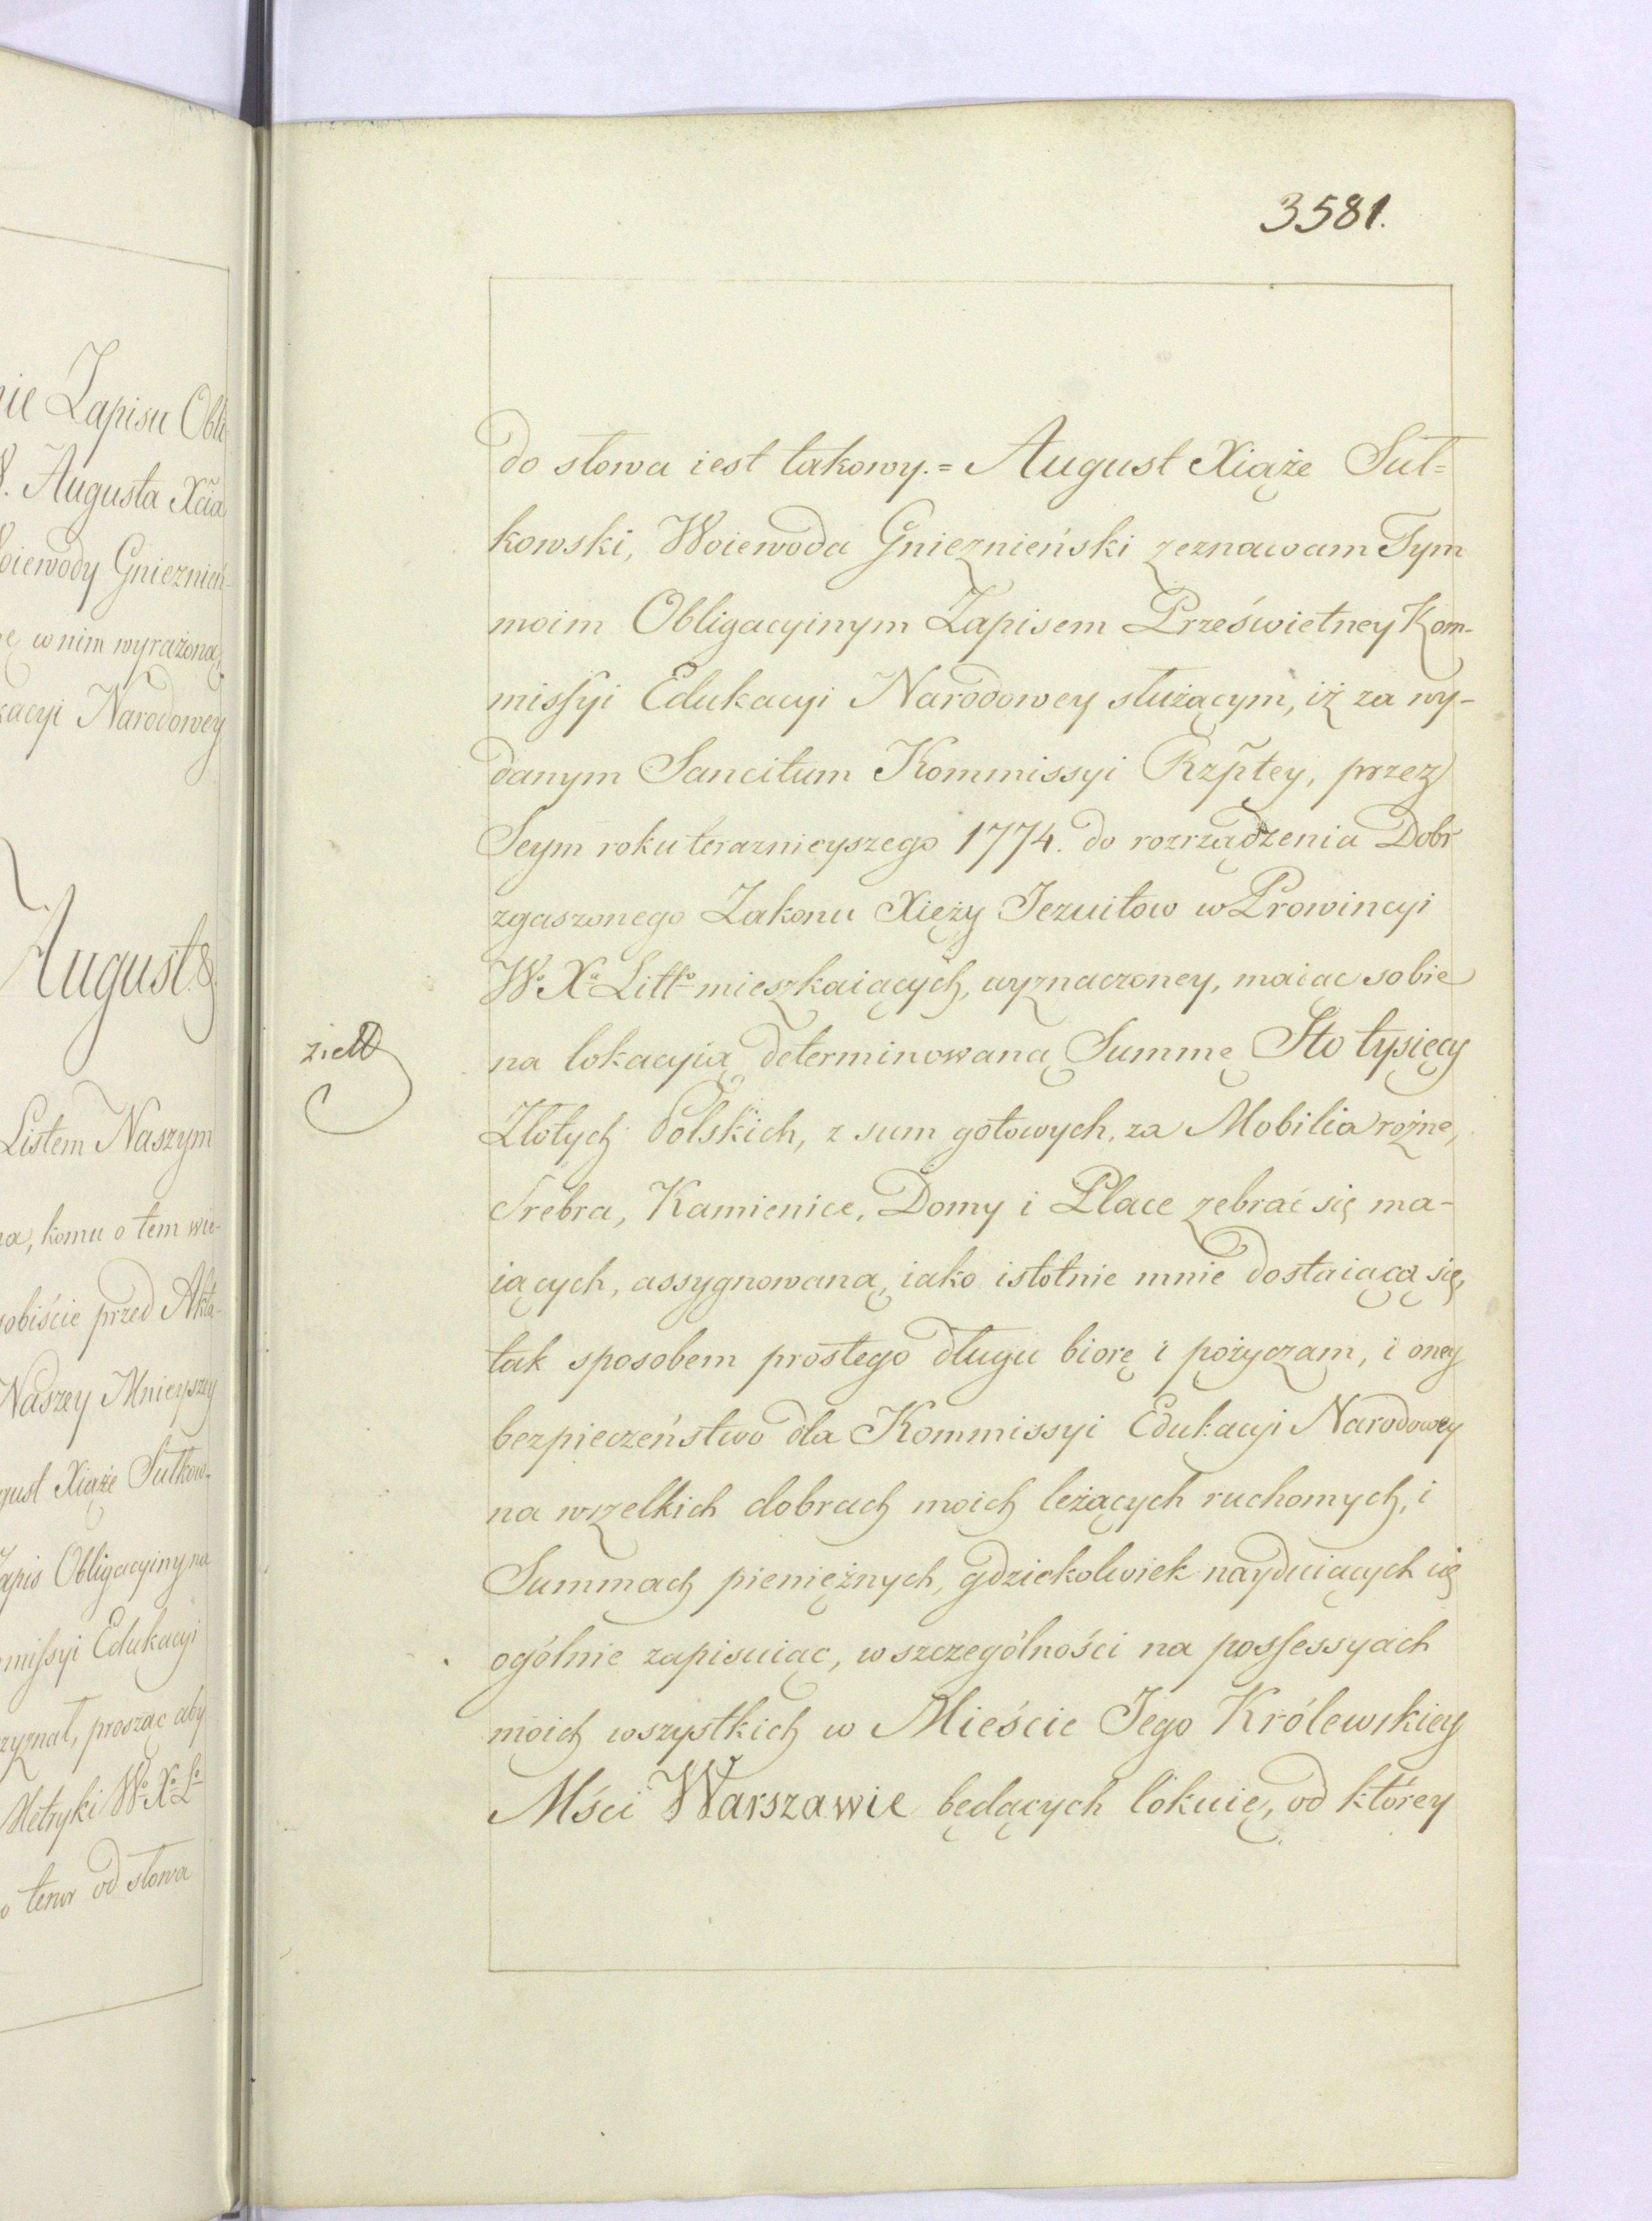 nie Zapisu Obli
Augusta Xcia
Woiewody Gnieznień-
w nim wyrażoną,
kacyi Narodowey
August
Listem Naszym
komu o tem wie-
obiście przed Akta-
Naszey Mnieyszey
gust Xiąże Sułkow-
apis Obligacyiny na
missyi Edukacyi
zyznał, prosząc aby
Metryki Wº Xº Lº
tenor od słowa
3581.
do słowa iest takowy.= August Xiąże Suł=
kowski, Woiewoda Gnieznieński zeznawam Tym
moim Obligacyinym Zapisem Prześwietney Kom-
missyi Edukacyi Narodowey służącym, iż za wy-
danym Sancitum Kommissyi Rzpłtey, przez
Seym roku teraznieyszego 1774. do rozrządzenia Dobr
zgaszonego Zakonu Xięży Jezuitow w Prowincyi
Wº Xª Littº mieszkaiących, wyznaczoney, maiac sobie
na lokacyią determinowaną Summę Sto tysięcy
Złotych Polskich, z sum gotowych, za Mobilia rożne,
Srebra, Kamienice, Domy i Place zebrać się ma-
iących, assygnowaną, iako istotnie mnie dostaiącą się,
tak sposobem prostego długu biorę i pożyczam, i oney
bezpieczeństwo dla Kommissyi Edukacyi Narodowey
na wszelkich dobrach moich leżących ruchomych, i
Summach pieniężnych, gdziekolwiek nayduiących się
ogólnie zapisuiąc, w szczególności na possessyach
moich wszystkich w Mieście Jego Królewskiey
Mści Warszawie będących lokuię, od którey